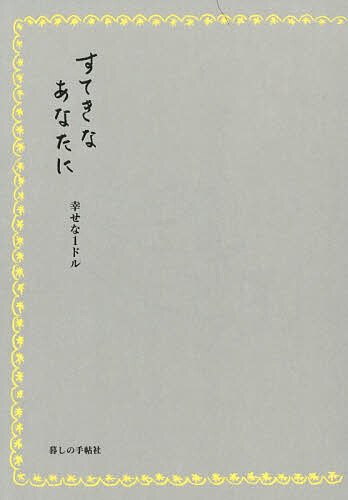 すてきな
あなたに
幸せな1ドル
暮しの手帖社